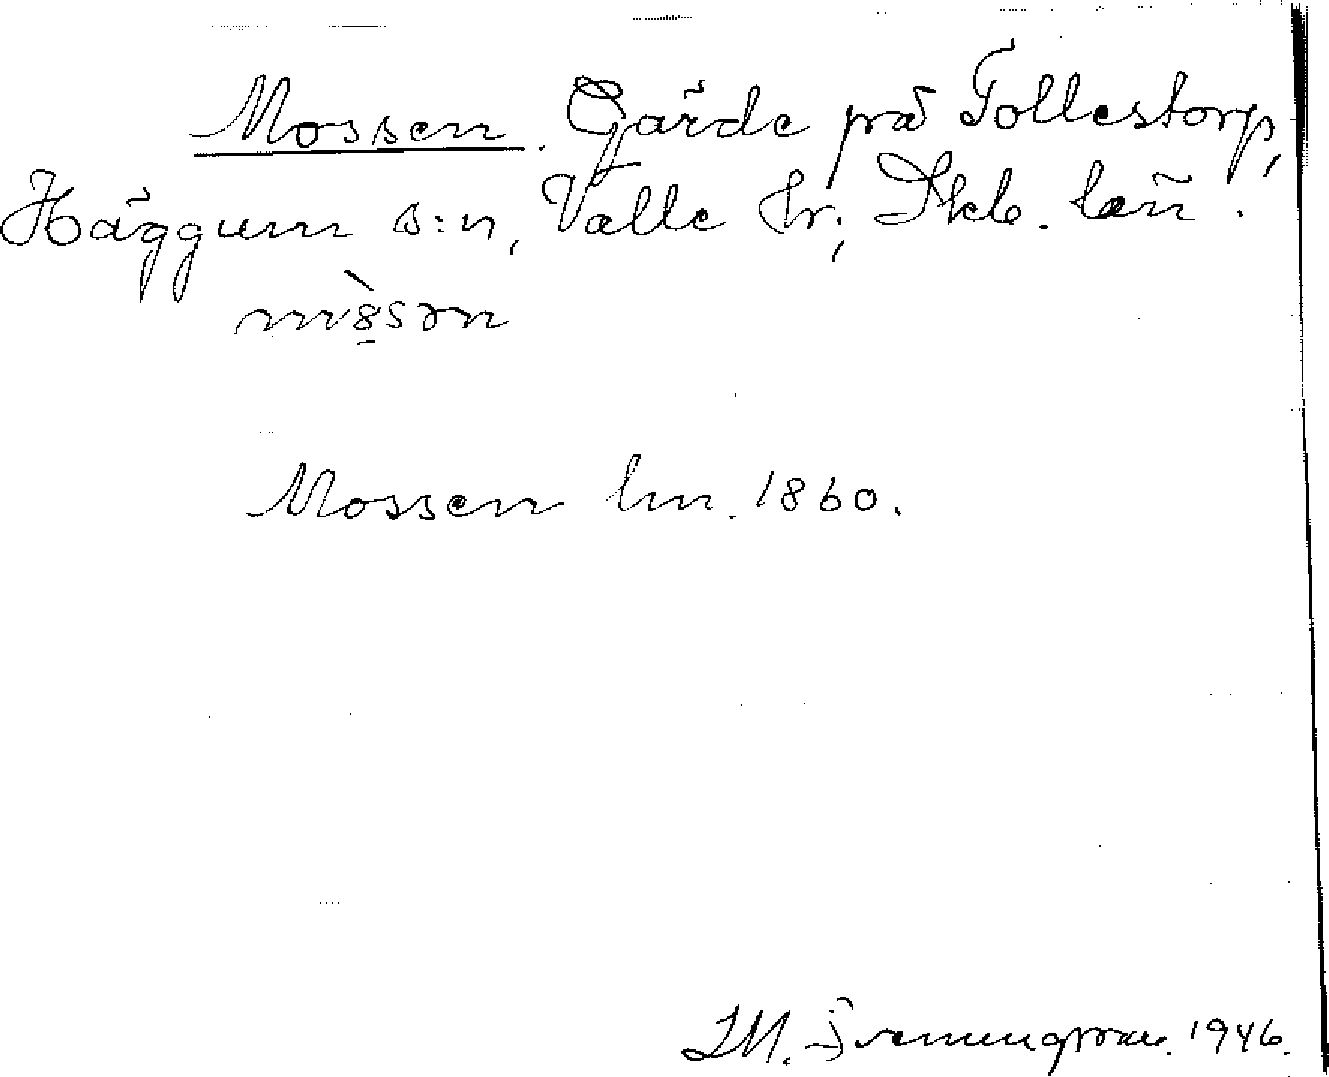 Mossen. Gärde på Tollestorp,
Häggum s:n, Valle hr; Skb. län.
Mossen lm. 1860.
1946.